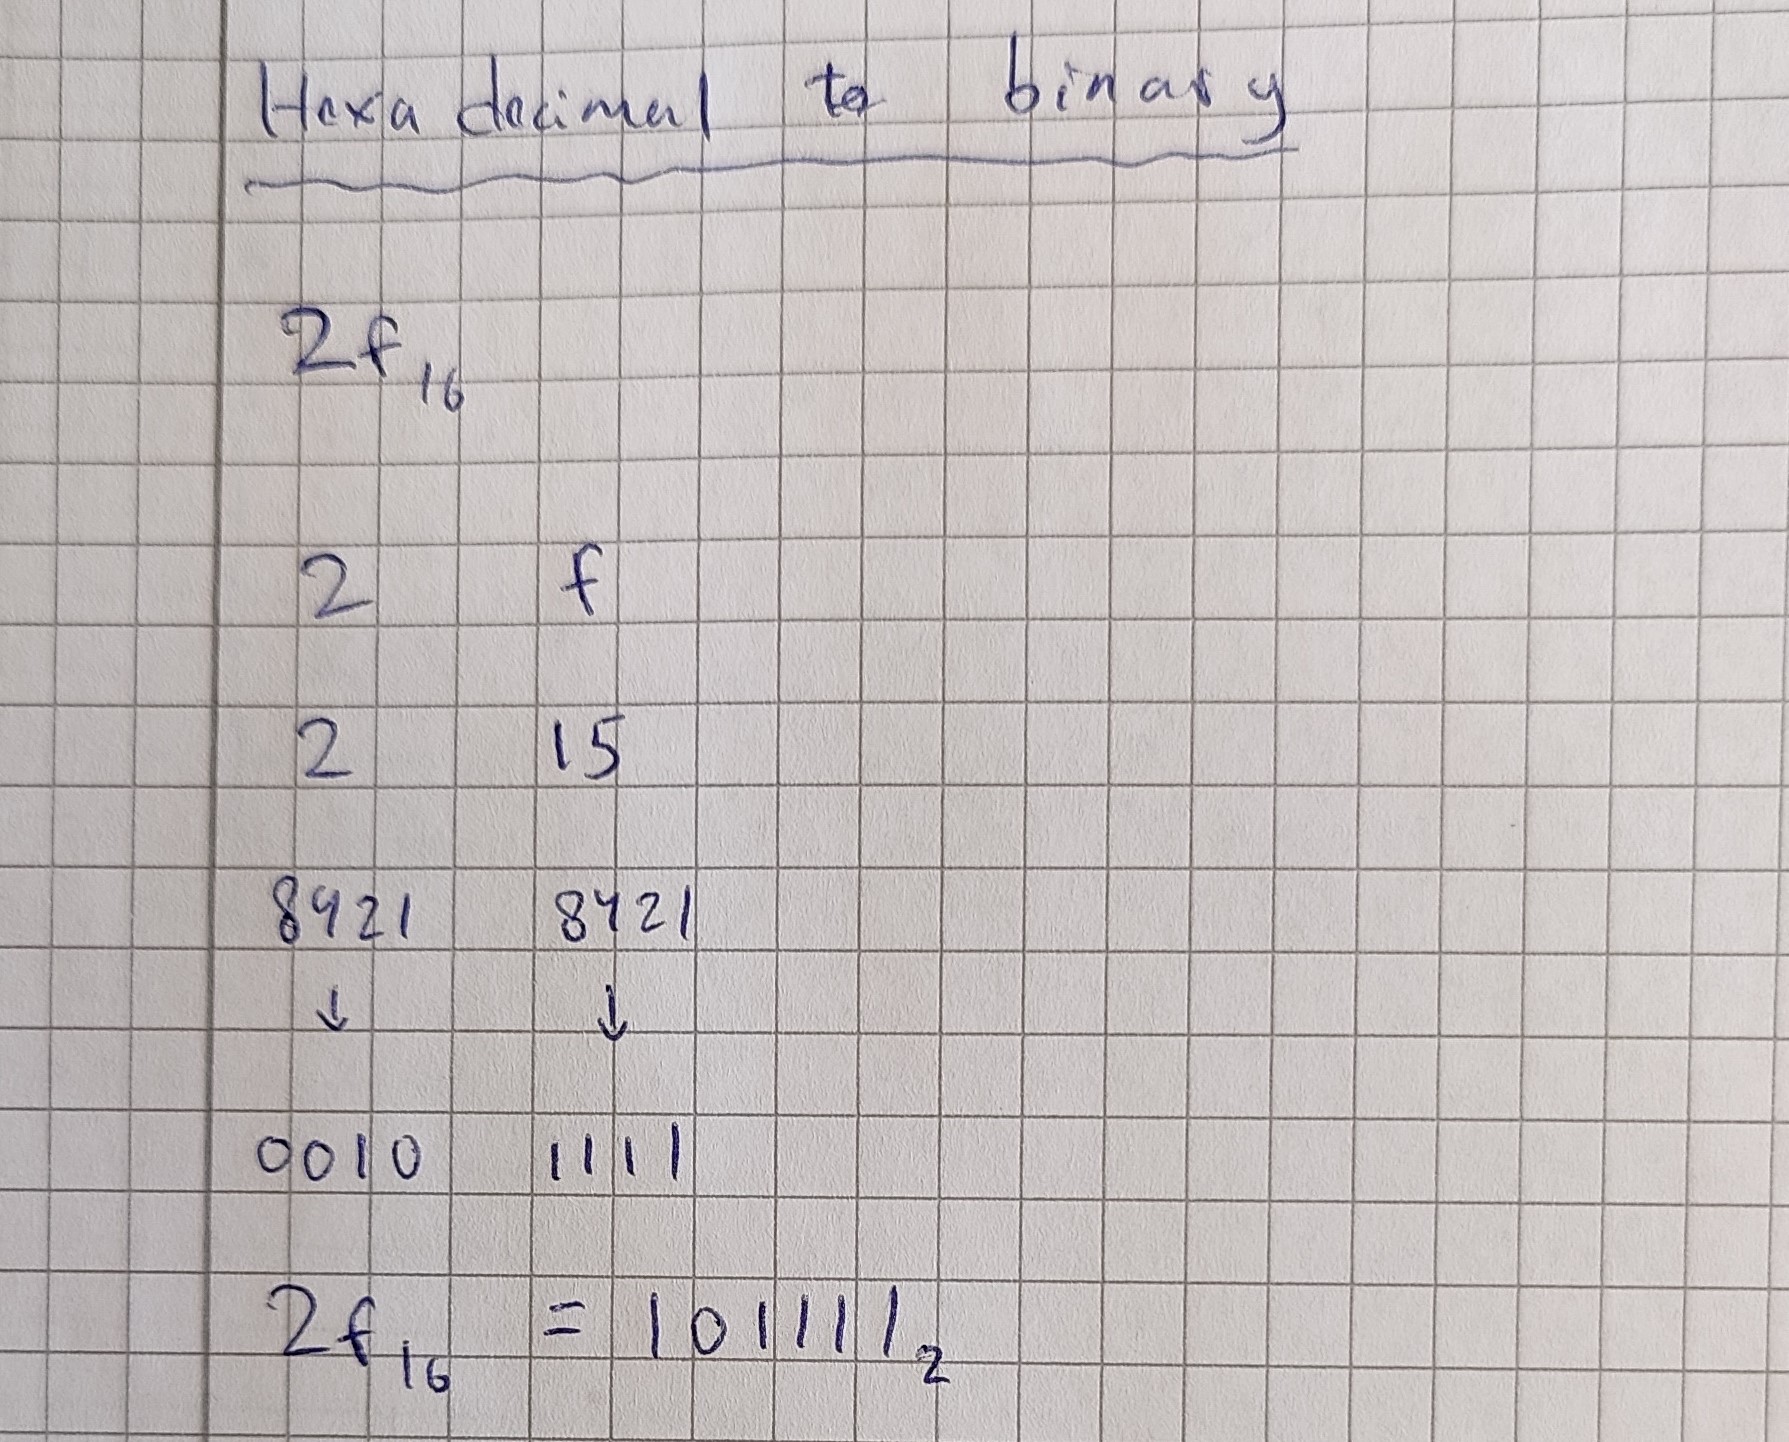 Hexa decimal to binary
2f₁₆
2 f
2 15
8421 8421
↓ ↓
0010 1111
2f₁₆ = 101111₂